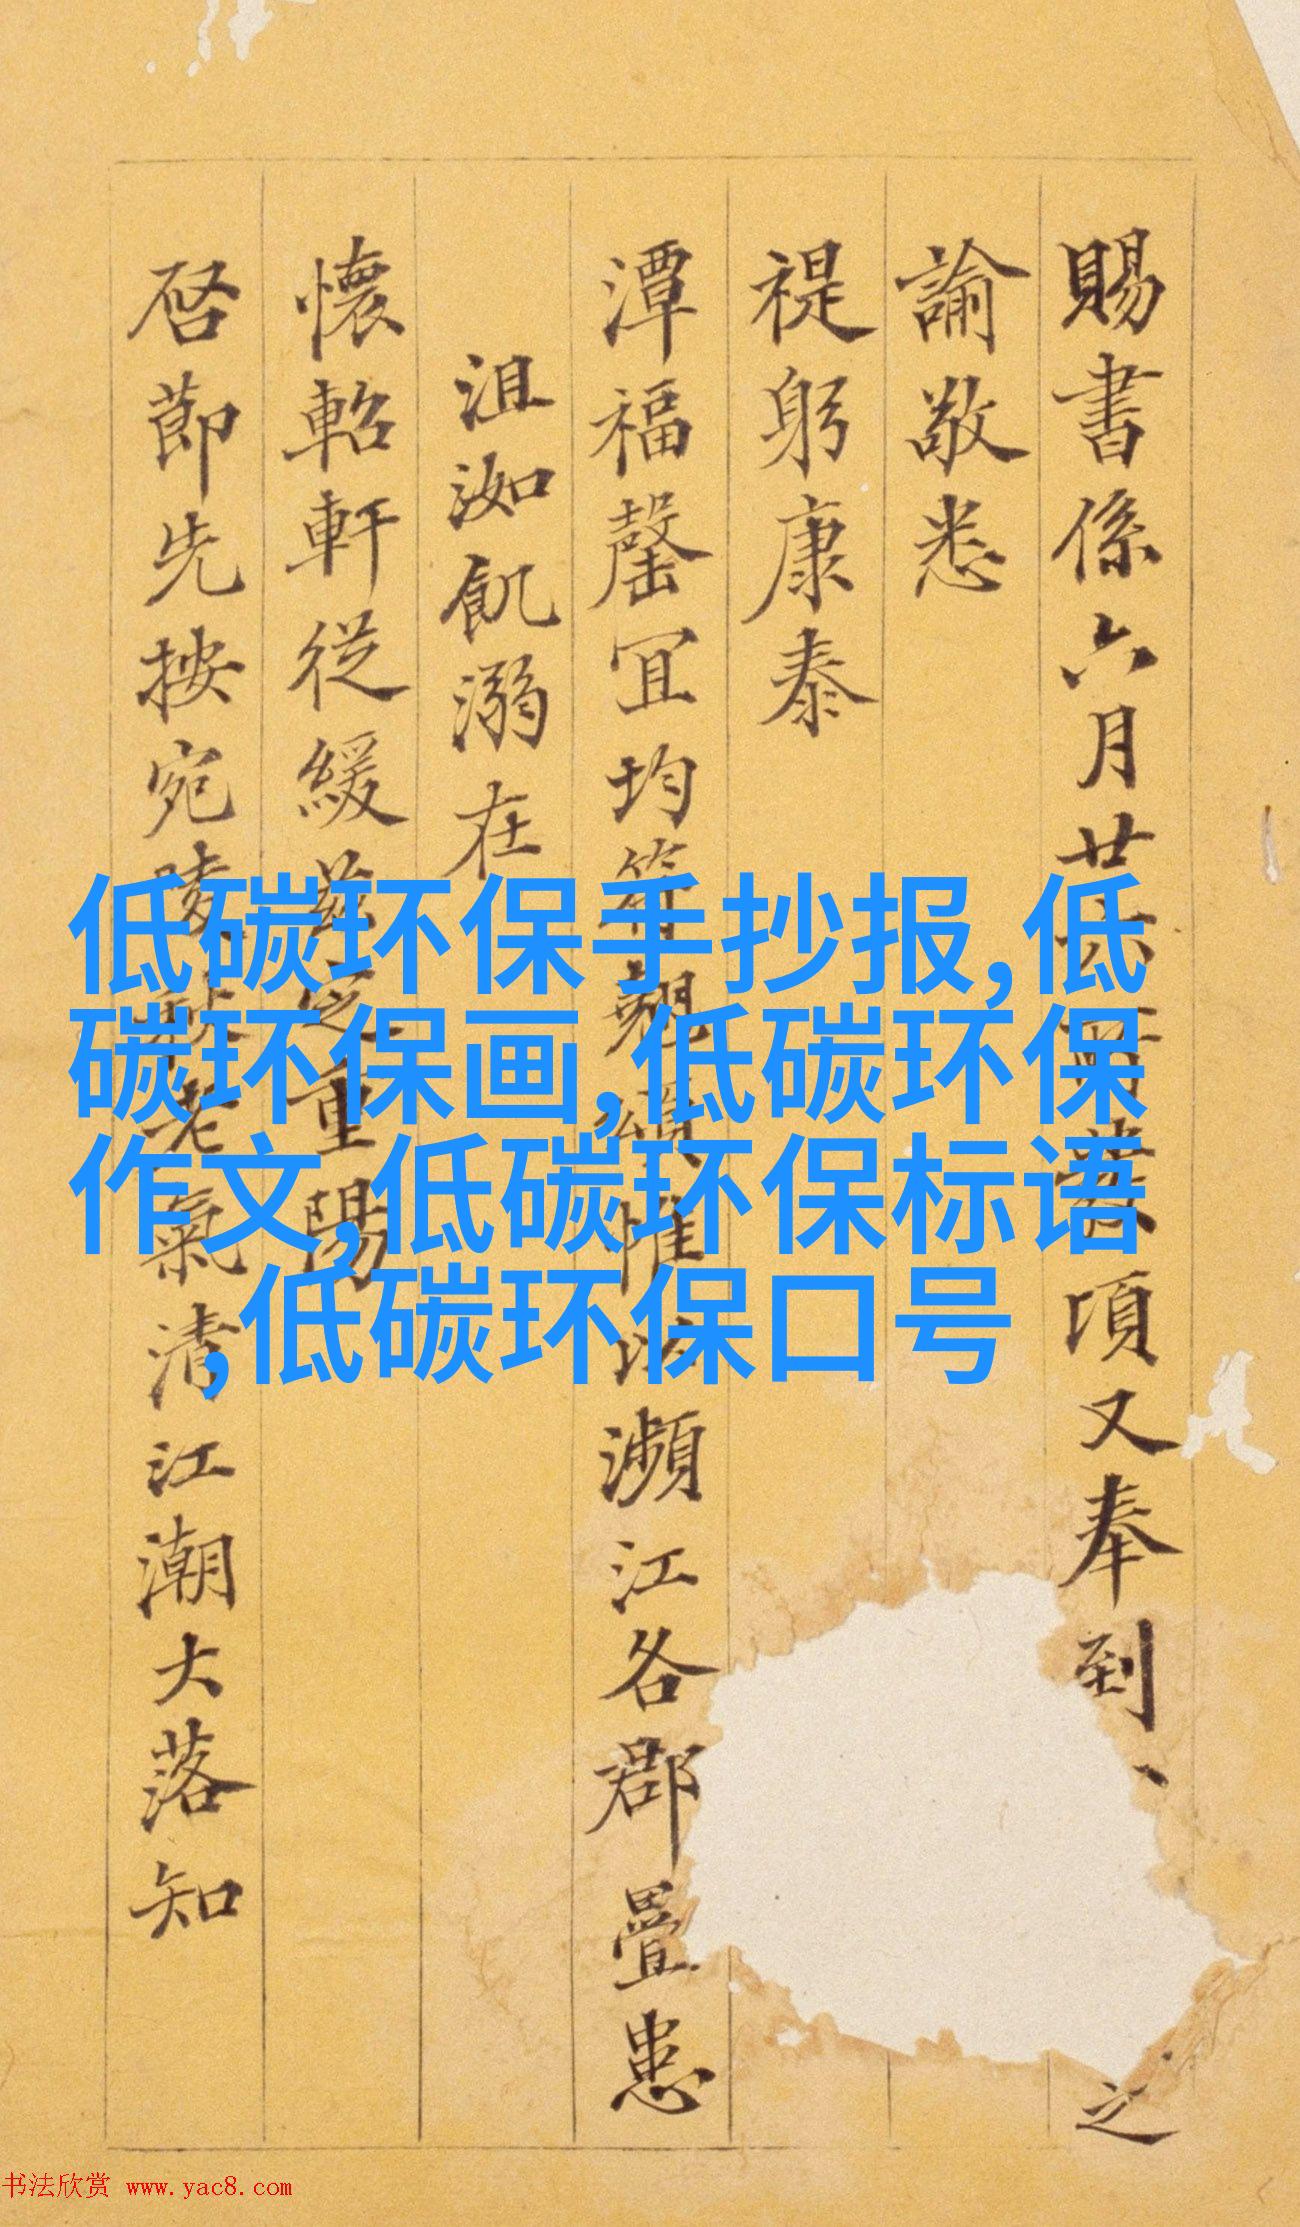 賜書係六月廿六日
項又奉到
之
諭敬悉
禔躬康泰
潭福罄宜均符
頌惟
瀕江各郡疊患
沮洳飢溺在
懷軺軒從緩茲定重陽
啓節先按宛陵秋老氣清江潮大落知
低碳环保手抄报,低
碳环保画,低碳环保
作文,低碳环保标语
,低碳环保口号
书法欣赏 www.yac8.com